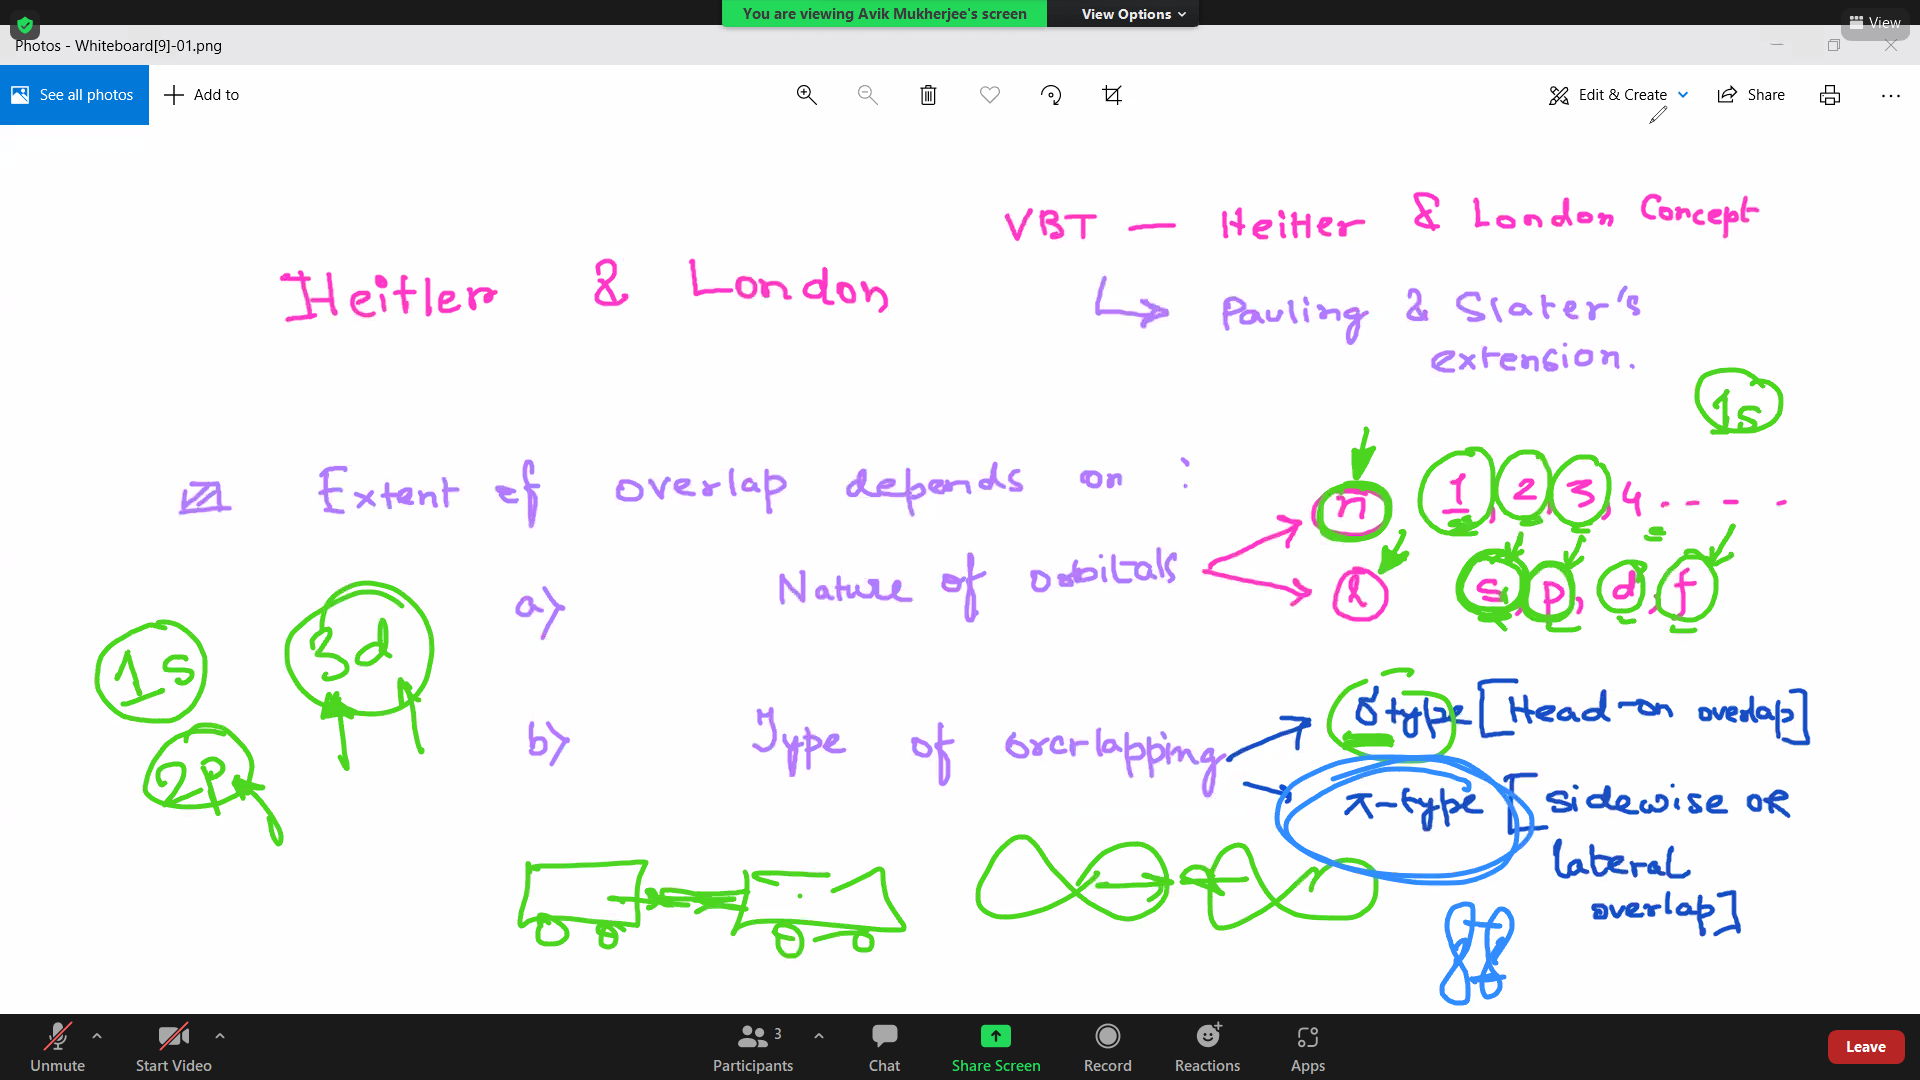 You are viewing Avik Mukherjee's screen
View Options
View
Photos - Whiteboard[9]-01.png
See all photos
Add to
Edit & Create
Share
VBT — Heitler & London Concept
Heitler & London
Pauling & Slater's
extension.
1s
Extent of overlap depends on :
n 1, 2, 3, 4 - - - -
a) Nature of orbitals
l s, p, d, f
1s
3d
2p
b) Type of overlapping
σ type [Head-on overlap]
π-type [sidewise or
lateral
overlap]
Unmute
Start Video
Participants
3
Chat
Share Screen
Record
Reactions
Apps
Leave